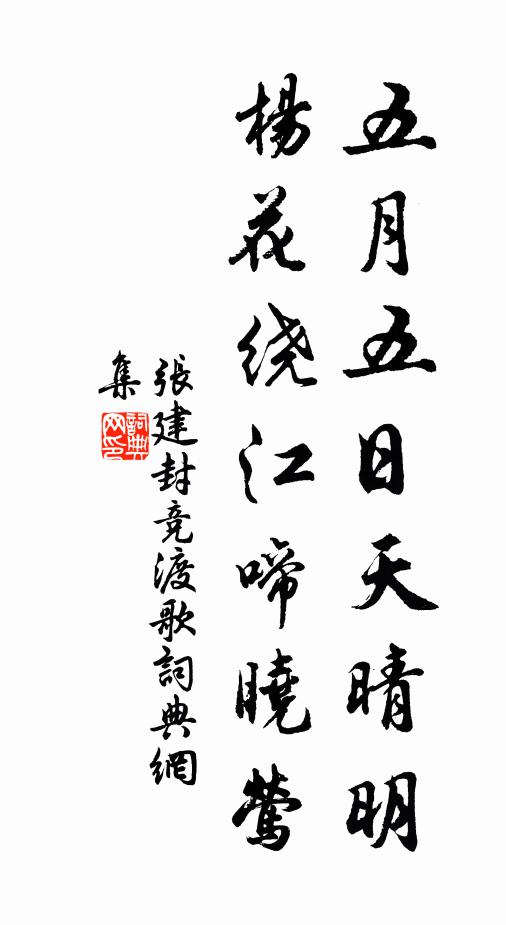 五月五日天晴明
楊花绕江啼曉鶯
張建封竞渡歌詞典網
集
詞典
网印